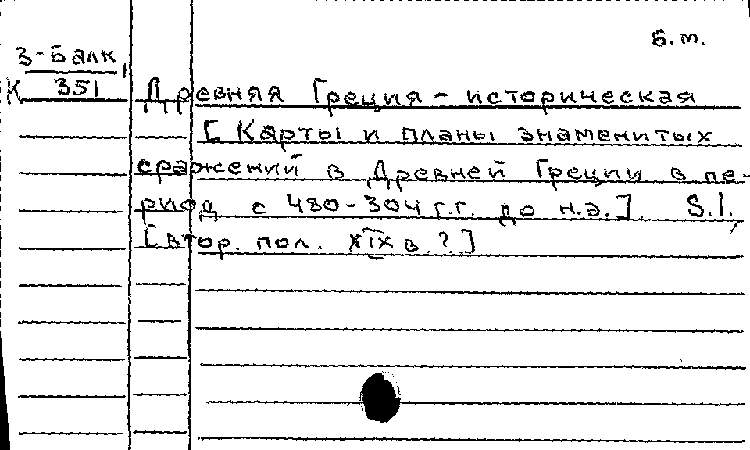 Б.m.
З-Балк,
К 351
Древняя Греция - историческая
[Карты и планы знаменитых
сражений в Древней Греции в пе-
риод с 480-304 г.г. до н.э.]. S.l.,
[втор. пол. XIX в.?]